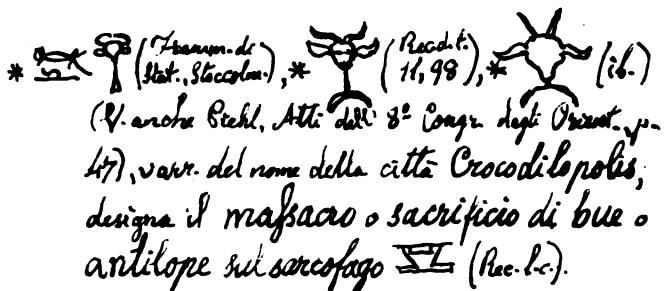 * (Framm. di Stat. Stoccolm.), * (Rec. d. t. 11, 98), * (ib.)
(V. anche Piehl, Atti dell' 8º Congr. degli Orient., p.
47), varr. del nome della città Crocodilopolis,
designa il maſsacro o sacrificio di bue o
antilope sul sarcofago (Rec. l. c.).